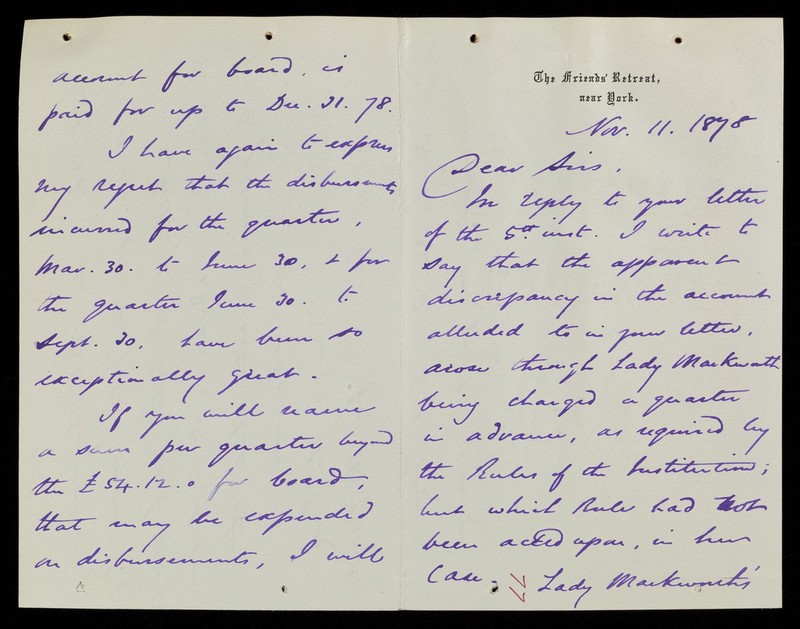 The Friends' Retreat,
near York.
Nov. 11. 1878
Dear Sirs,
In reply to your letter
of the 5th inst. I write to
say that the apparent
discrepancy in the account
alluded to in your letter,
arose through Lady Mackworth
being charged a quarter
in advance, as required by
the Rules of the Institution;
but which Rule had not
been acted upon, in her
case. Lady Mackworth's
77
account for board, is
paid for up to Dec. 31. 78.
I have again to express
my regret that the disbursements
incurred for the quarter,
Mar. 30. to June 30, & for
the quarter June 30. to
Sept. 30, have been so
exceptionally great.
If you will name
a sum per quarter beyond
the £54.12.0 for board,
that may be expended
on disbursements, I will